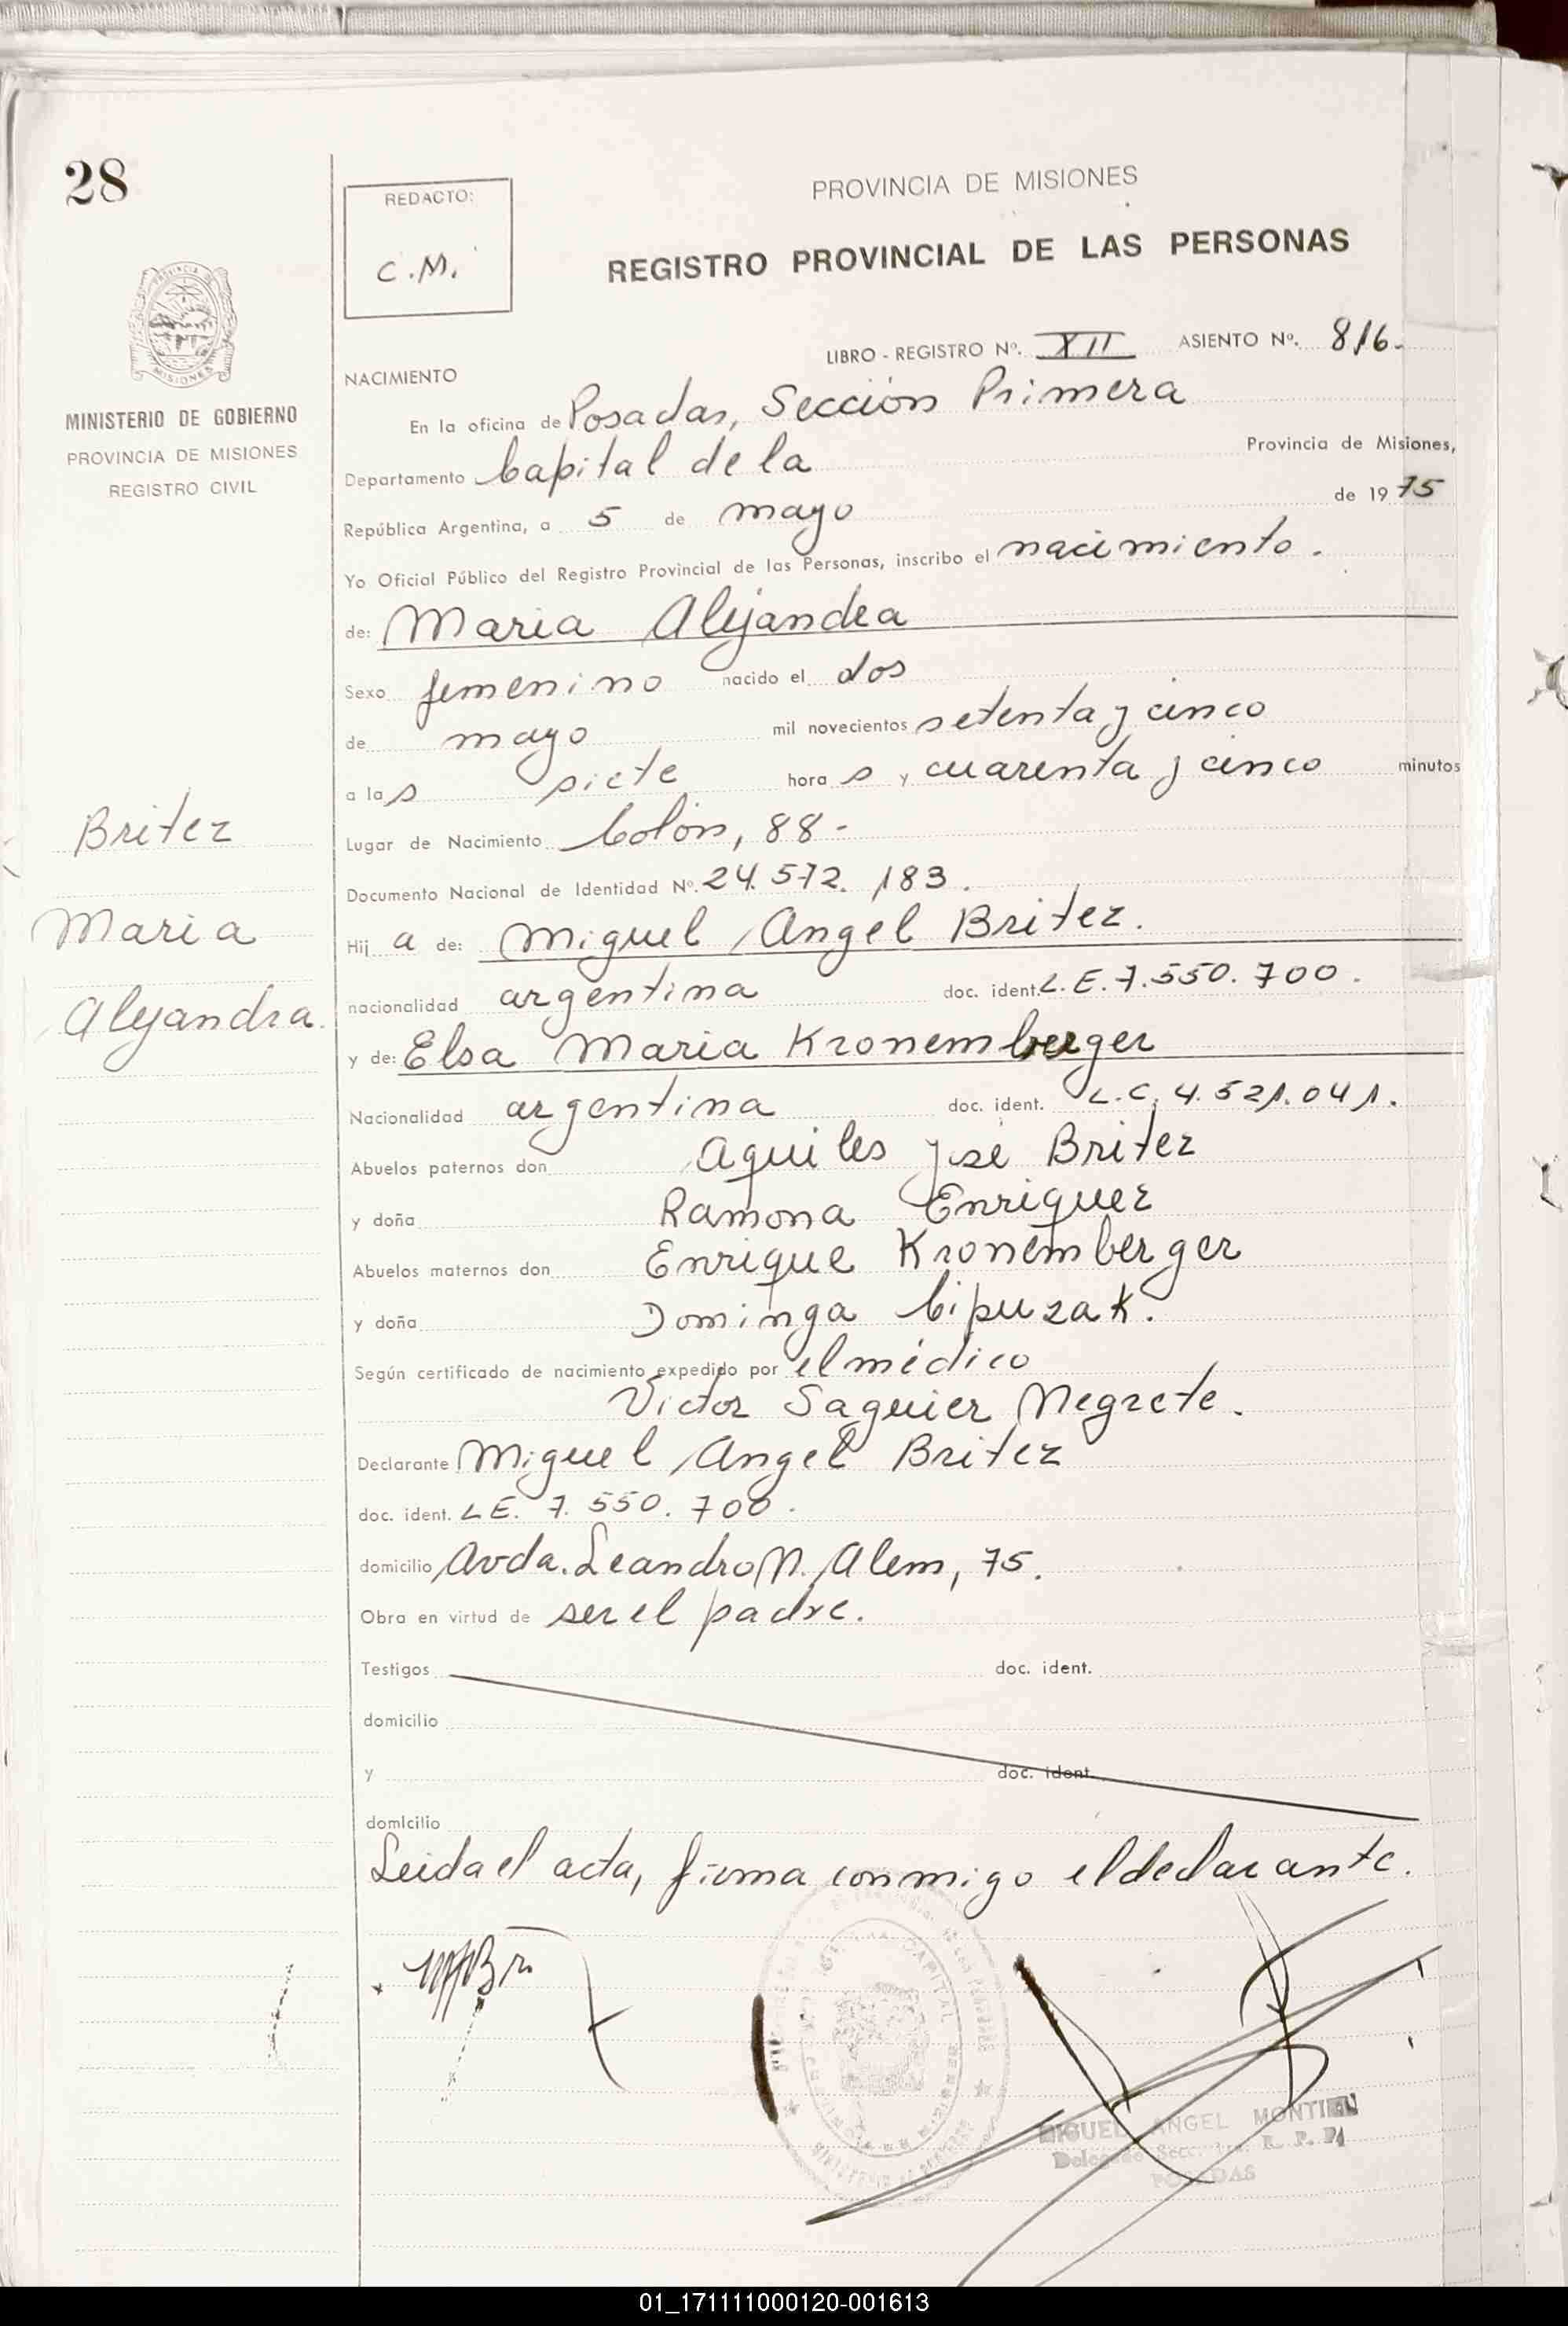 28
REDACTO:
C.M.
PROVINCIA DE MISIONES
REGISTRO PROVINCIAL DE LAS PERSONAS
LIBRO - REGISTRO Nº. XII ASIENTO Nº. 816.-
MISIONES
MINISTERIO DE GOBIERNO
PROVINCIA DE MISIONES
REGISTRO CIVIL
NACIMIENTO
En la oficina de Posadas, Sección Primera
Departamento Capital de la Provincia de Misiones,
República Argentina, a 5 de mayo de 1975
Yo Oficial Público del Registro Provincial de las Personas, inscribo el nacimiento.
de: Maria Alejandra
Sexo femenino nacido el dos
de mayo mil novecientos setenta y cinco
a las siete horas y cuarenta y cinco minutos
Lugar de Nacimiento Colón, 88-
Documento Nacional de Identidad Nº. 24.572.183.
Britez
Maria
Alejandra.
Hija de: Miguel Angel Britez.
nacionalidad argentina doc. ident. L.E. 7.550.700.
y de: Elsa Maria Kronemberger
Nacionalidad argentina doc. ident. L.C. 4.521.041.
Abuelos paternos don Aquiles José Britez
y doña Ramona Enriquez
Abuelos maternos don Enrique Kronemberger
y doña Dominga Cipuzak.
Según certificado de nacimiento expedido por el médico
Victor Saguier Negrete.
Declarante Miguel Angel Britez
doc. ident. L.E. 7.550.700.
domicilio Avda. Leandro N. Alem, 75.
Obra en virtud de ser el padre.
Testigos doc. ident.
domicilio
y doc. ident.
domicilio
Leida el acta, firma conmigo el declarante.
CAPITAL
MIGUEL ANGEL MONTIEL
POSADAS
01_171111000120-001613